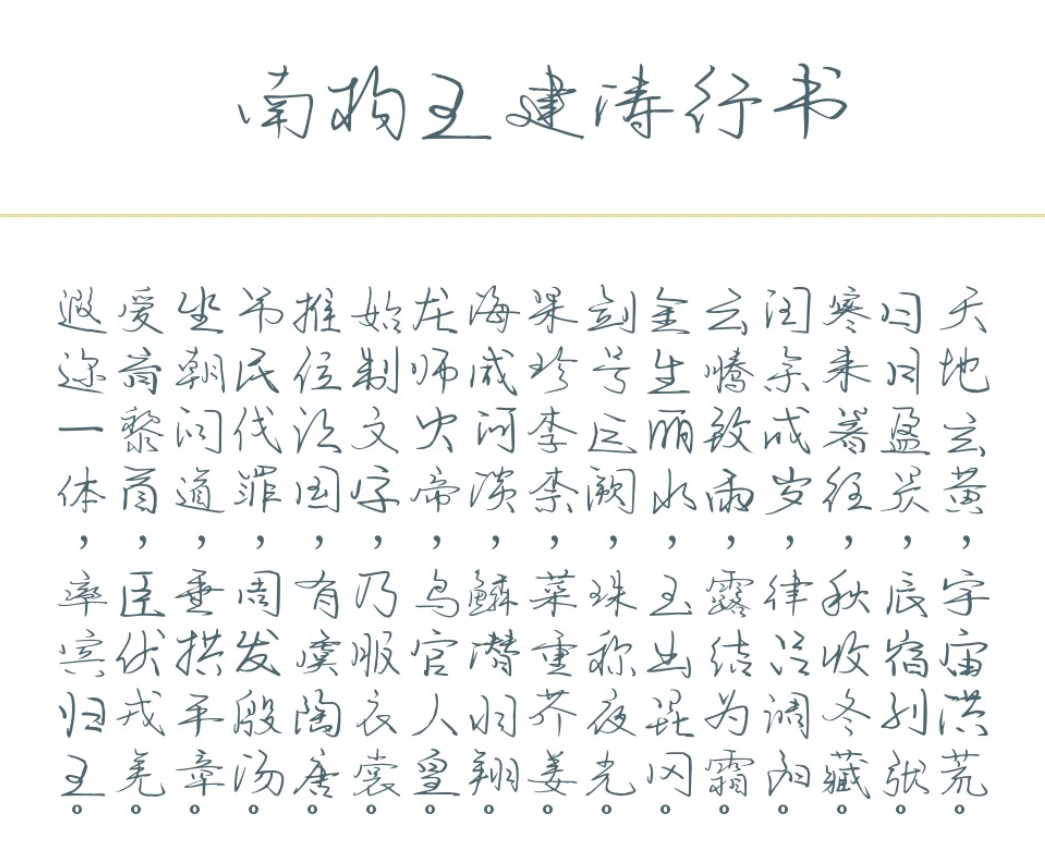 南构王建涛行书
天地玄黄，宇宙洪荒。
日月盈昃，辰宿列张。
寒来暑往，秋收冬藏。
闰余成岁，律吕调阳。
云腾致雨，露结为霜。
金生丽水，玉出昆冈。
剑号巨阙，珠称夜光。
果珍李柰，菜重芥姜。
海咸河淡，鳞潜羽翔。
龙师火帝，鸟官人皇。
始制文字，乃服衣裳。
推位让国，有虞陶唐。
吊民伐罪，周发殷汤。
坐朝问道，垂拱平章。
爱育黎首，臣伏戎羌。
遐迩一体，率宾归王。